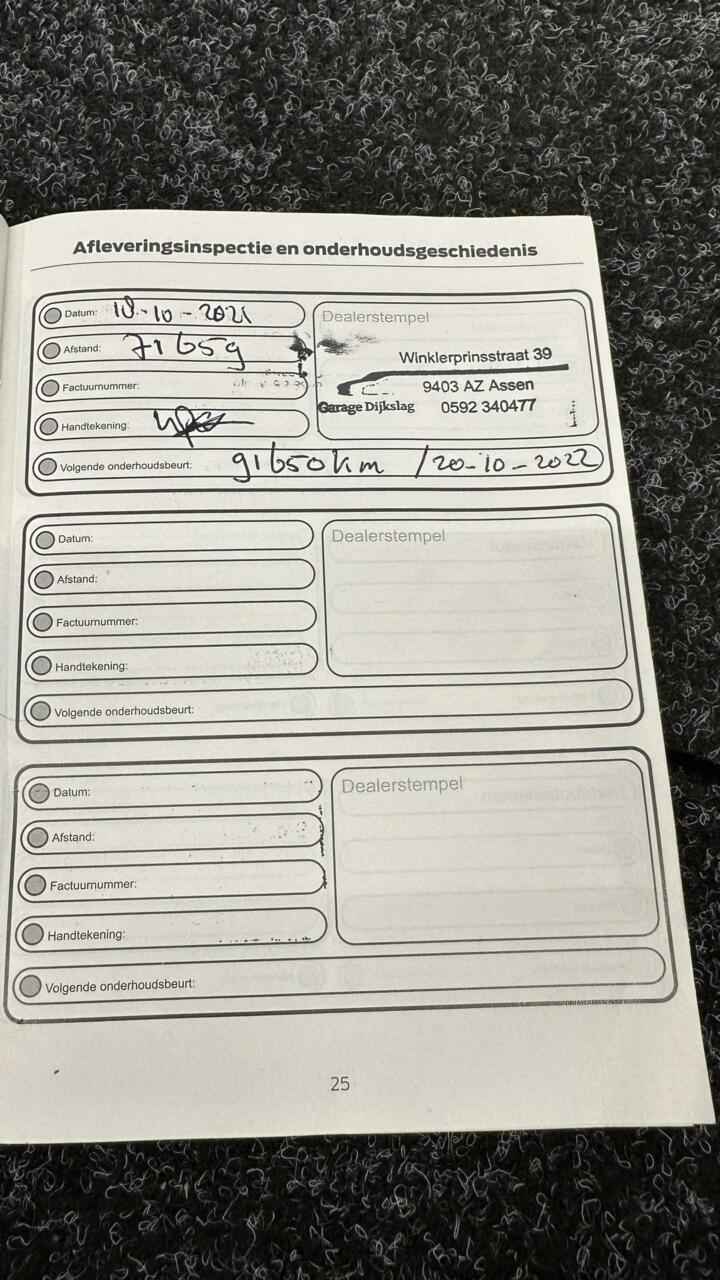 Afleveringsinspectie en onderhoudsgeschiedenis
Datum: 18-10-2021
Afstand: 71659
Factuurnummer:
Handtekening:
Dealerstempel
Winklerprinsstraat 39
9403 AZ Assen
Garage Dijkslag 0592 340477
Volgende onderhoudsbeurt: 91650km /20-10-2022
Datum:
Afstand:
Factuurnummer:
Handtekening:
Dealerstempel
Volgende onderhoudsbeurt:
Datum:
Afstand:
Factuurnummer:
Handtekening:
Dealerstempel
Volgende onderhoudsbeurt:
25